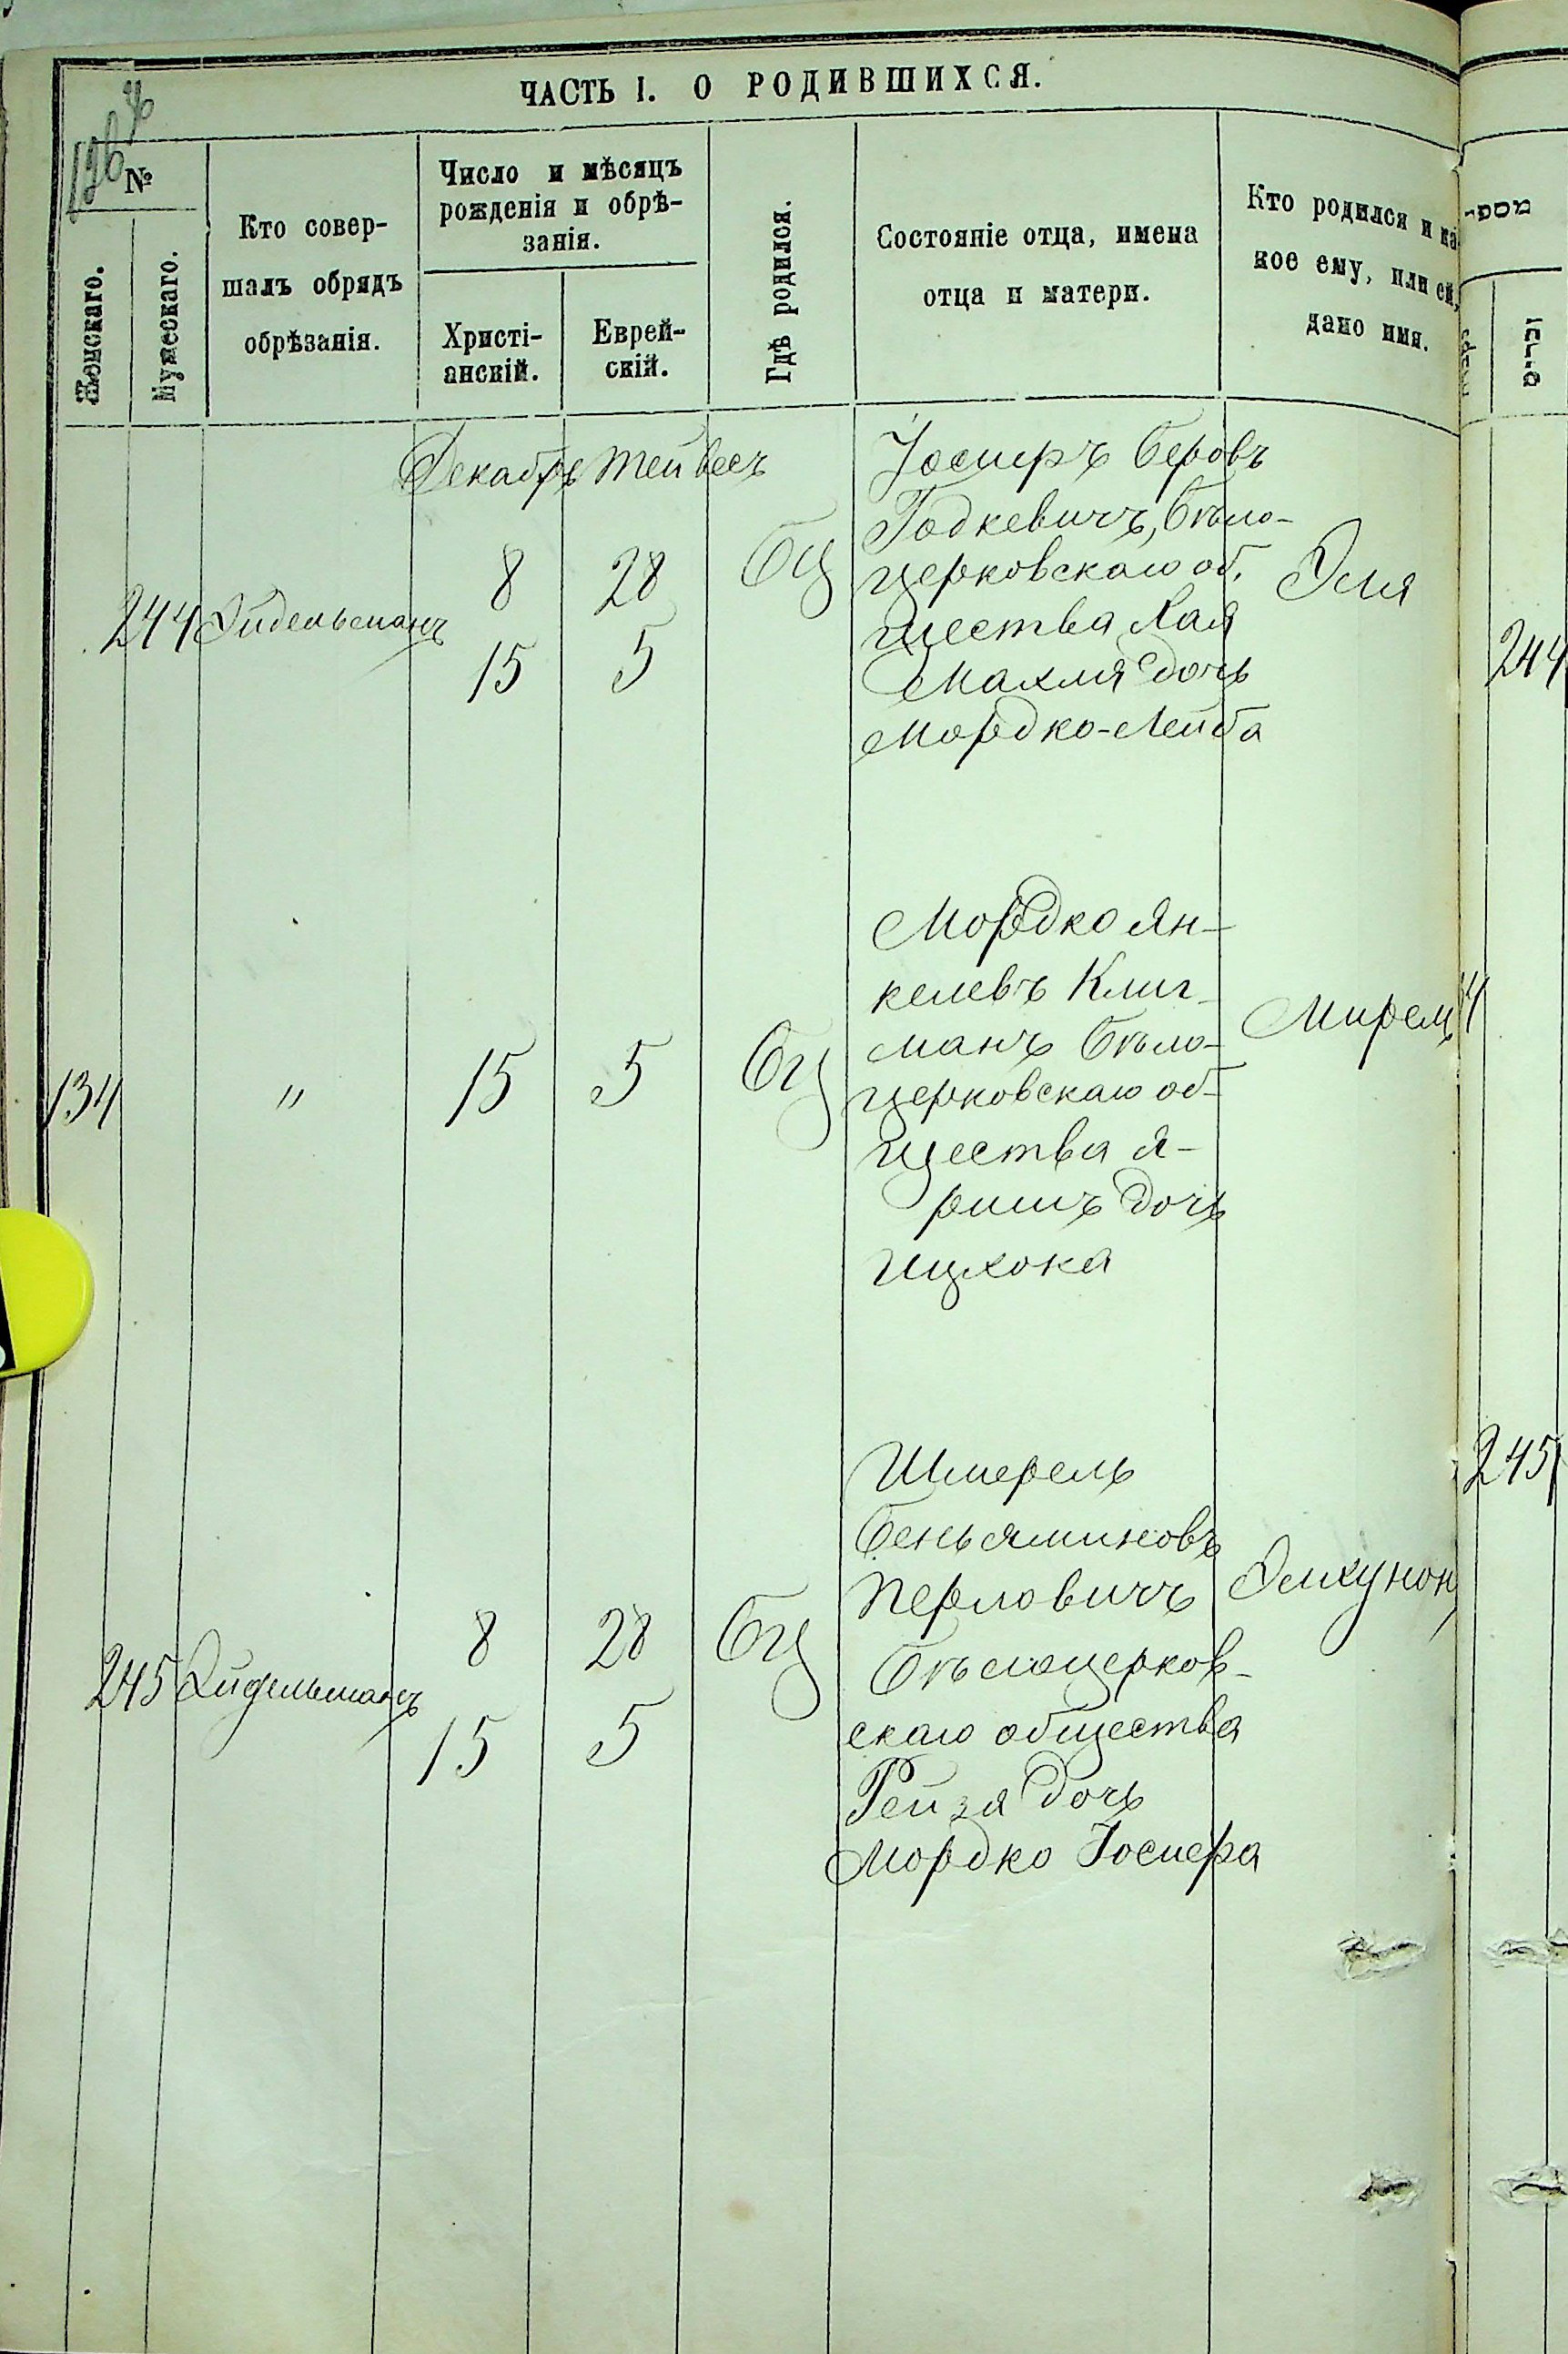 ЧАСТЬ I. О РОДИВШИХСЯ.
№
Женскаго.
Мужескаго.
Кто совер-
шалъ обрядъ
обрѣзанія.
Число и мѣсяцъ
рожденія и обрѣ-
занія.
Христі-
анскій.
Еврей-
скій.
Гдѣ родился.
Состояніе отца, имена
отца и матери.
Кто родился и ка
кое ему, или ей,
дано имя.
Декабрь Тейвесъ
244 Эйдельманъ
8 28
15 5
БЦ
Іосифъ Беровъ
Годкевичъ, Бѣло-
церковскаго об.
щества Хая
Махля дочь
Мордко-Лейба
Эля
244
134 " 15 5 БЦ
Мордко Ян-
келевъ Клиг-
манъ Бѣло-
церковскаго об-
щества
дочь
Ицхока
245
245 Эйдельманъ
8 28
15 5
БЦ
Шмерель
Беньяминовъ
Перловичъ
Бѣлоцерков-
скаго общества
Рейзя дочь
Мордко Іосифа
Элхунон